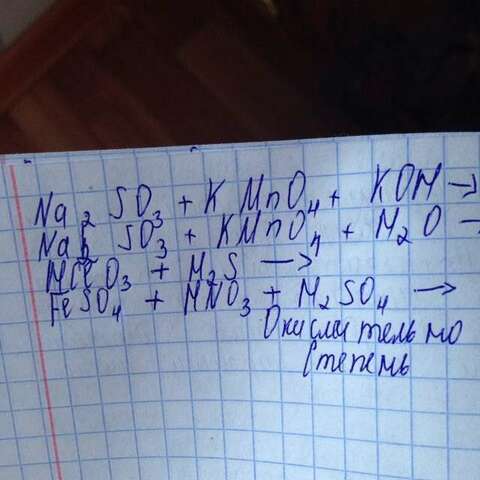 Na₂SO₃ + KMnO₄ + KOH →
Na₂SO₃ + KMnO₄ + H₂O →
HClO₃ + H₂S →
FeSO₄ + HNO₃ + H₂SO₄ →
Окислительно
Степень